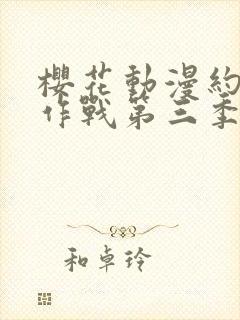 櫻花動漫約
作戰第三季
和卓玲